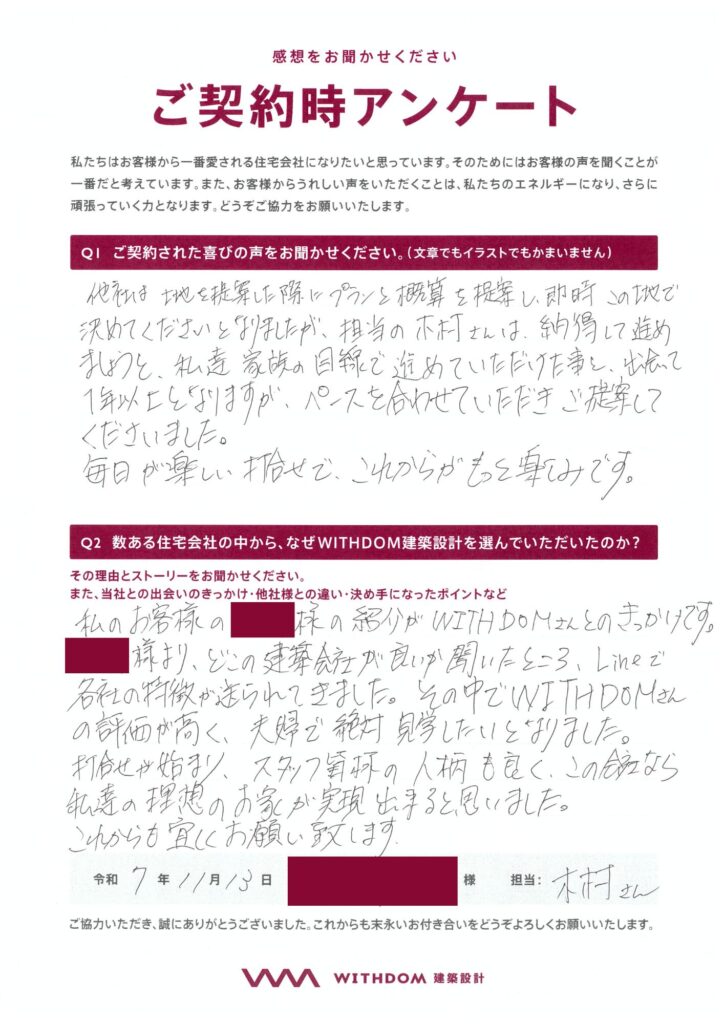 感想をお聞かせください
ご契約時アンケート
私たちはお客様から一番愛される住宅会社になりたいと思っています。そのためにはお客様の声を聞くことが
一番だと考えています。また、お客様からうれしい声をいただくことは、私たちのエネルギーになり、さらに
頑張っていく力となります。どうぞご協力をお願いいたします。
Q1 ご契約された喜びの声をお聞かせください。(文章でもイラストでもかまいません)
他社は 土地を提案した際にプランと概算を提案し、即時この地で
決めてくださいとなりましたが、担当の木村さんは、納得して進め
ましょうと、私達家族の目線で進めていただけた事と、出会って
1年以上となりますが、ペースを合わせていただき ご提案して
くださいました。
毎日が楽しい打合せで、これからがもっと楽しみです。
Q2 数ある住宅会社の中から、なぜWITHDOM建築設計を選んでいただいたのか?
その理由とストーリーをお聞かせください。
また、当社との出会いのきっかけ・他社様との違い・決め手になったポイントなど
私のお客様の 様の紹介がWITHDOMさんとのきっかけです。
様より、どこの建築会社が良いか聞いたところ、Lineで
各社の特徴が送られてきました。その中でWITHDOMさん
の評価が高く、夫婦で絶対見学したいとなりました。
打合せが始まり、スタッフ皆様の人柄も良く、この会社なら
私達の理想のお家が実現出来ると思いました。
これからも宜しくお願い致します
令和 7 年 11 月 13 日 様 担当: 木村さん
ご協力いただき、誠にありがとうございました。これからも末永いお付き合いをどうぞよろしくお願いいたします。
WITHDOM 建築設計